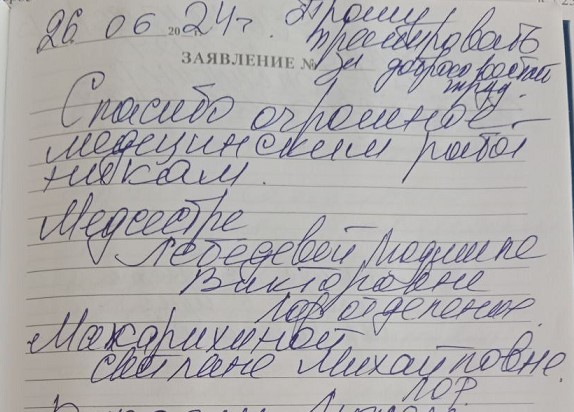 26 06 2024г. Прошу
премировать
ЗАЯВЛЕНИЕ № за добросовестный
труд.
Спасибо огромное
медицинским работ
никам.
Медсестре
Лебедевой Людмиле
Викторовне
Лор отделения.
Макарихиной
Светлане Михайловне.
ЛОР